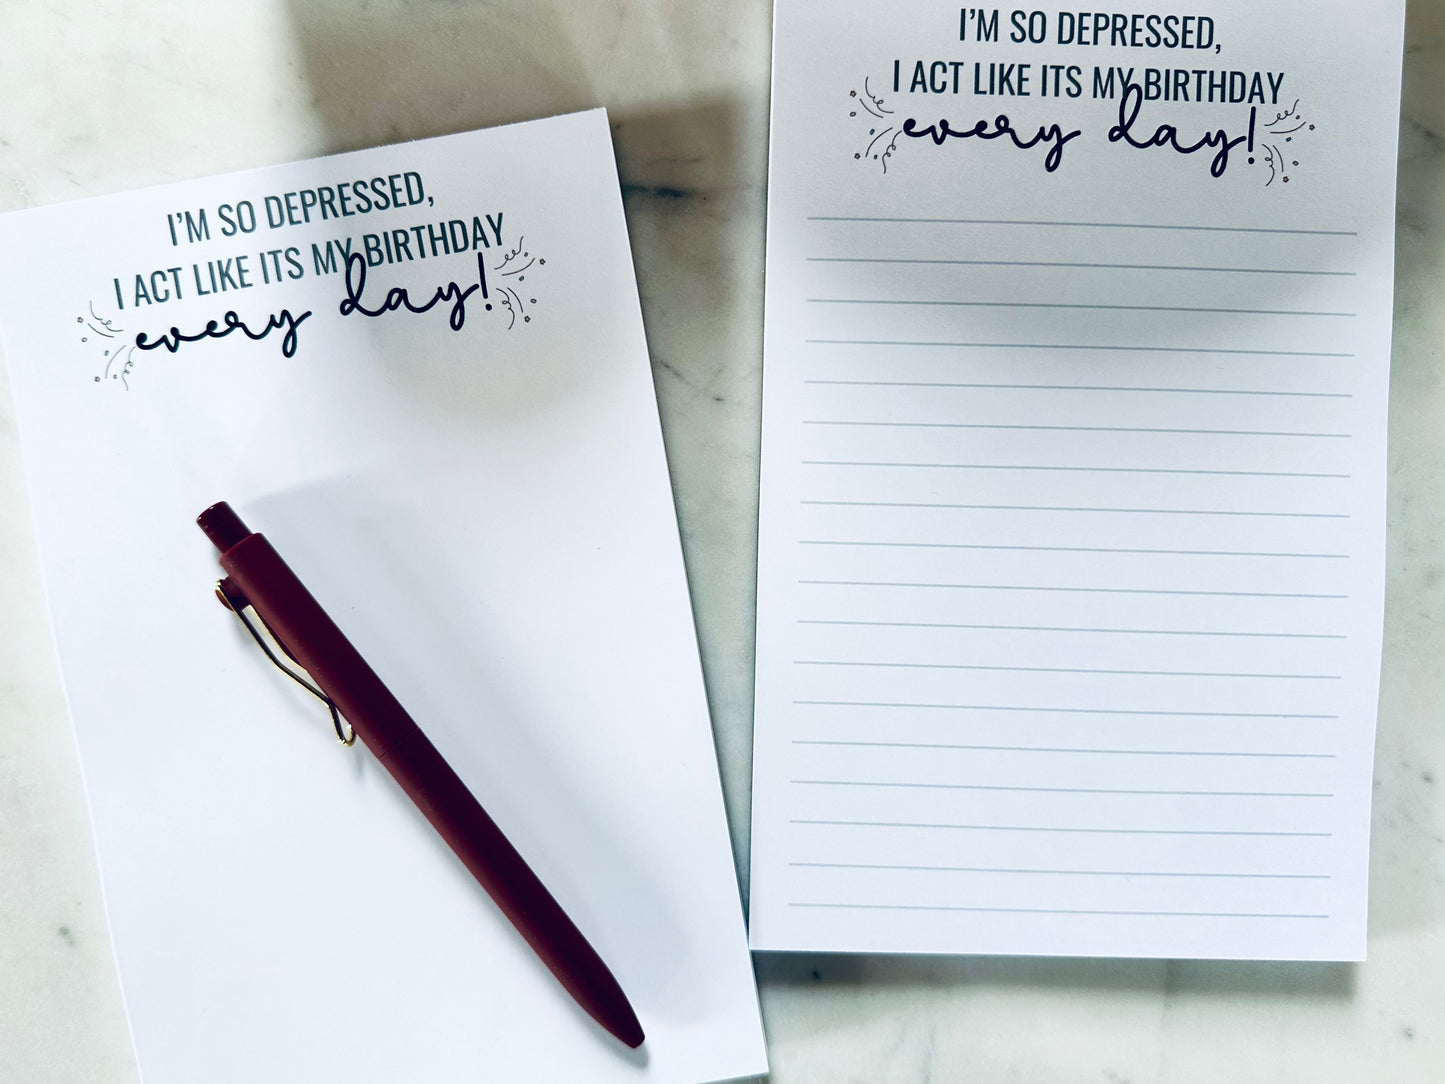 I'M SO DEPRESSED,
I ACT LIKE ITS MY BIRTHDAY
every day!
I'M SO DEPRESSED,
I ACT LIKE ITS MY BIRTHDAY
every day!